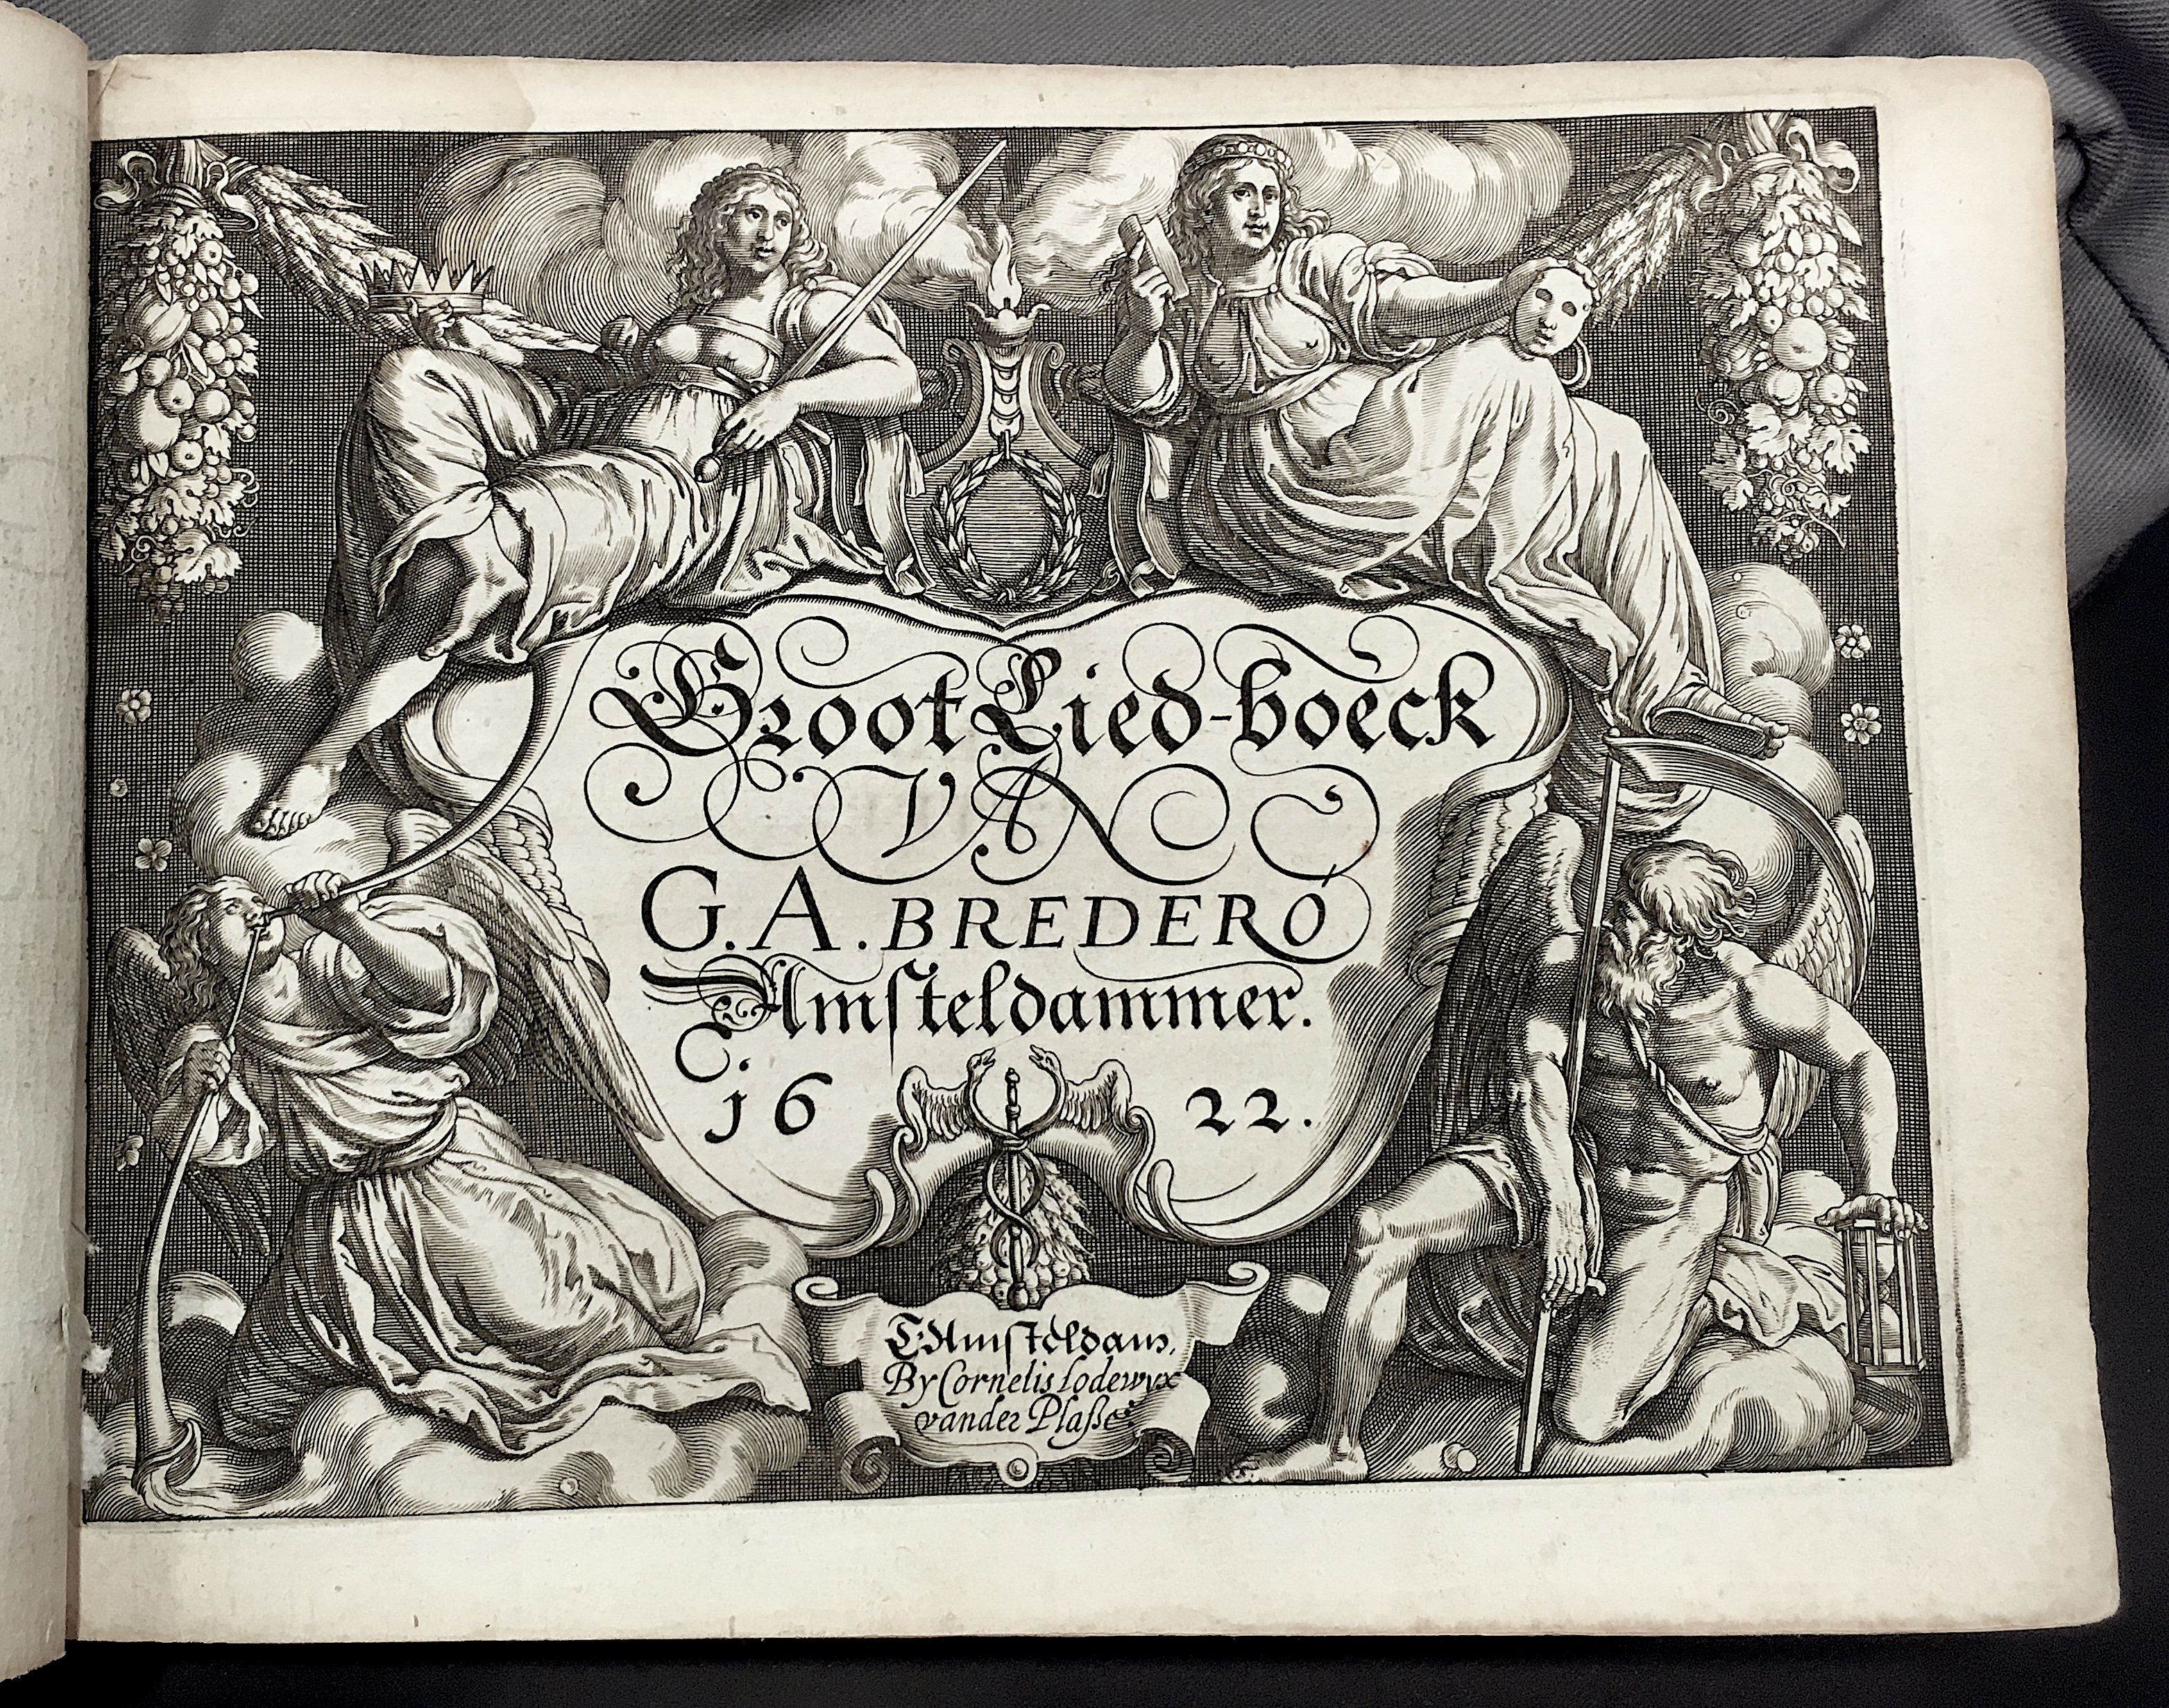 Groot Lied-boeck
VAN
G. A. BREDERÓ
Amsteldammer.
1622.
T'Amsteldam,
By Cornelis lodewyx
vander Plasse